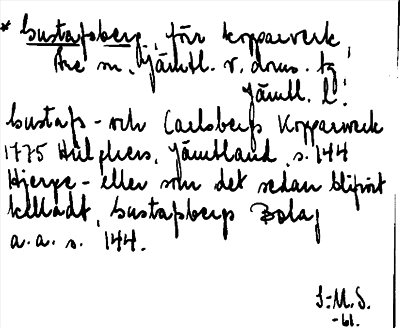 * Gustafsberg, förr kopparverk,
Åre sn, Jämtl. v. doms. tg
Jämtl. l.
Gustafs- och Carlsbergs Kopparverk
1775 Hülphers, Jämtland s. 144
Hjerpe- eller som det sedan blifvit
kalladt, Gustafsbergs Bolag
a.a. s. 144.
S-M.S.
-61.